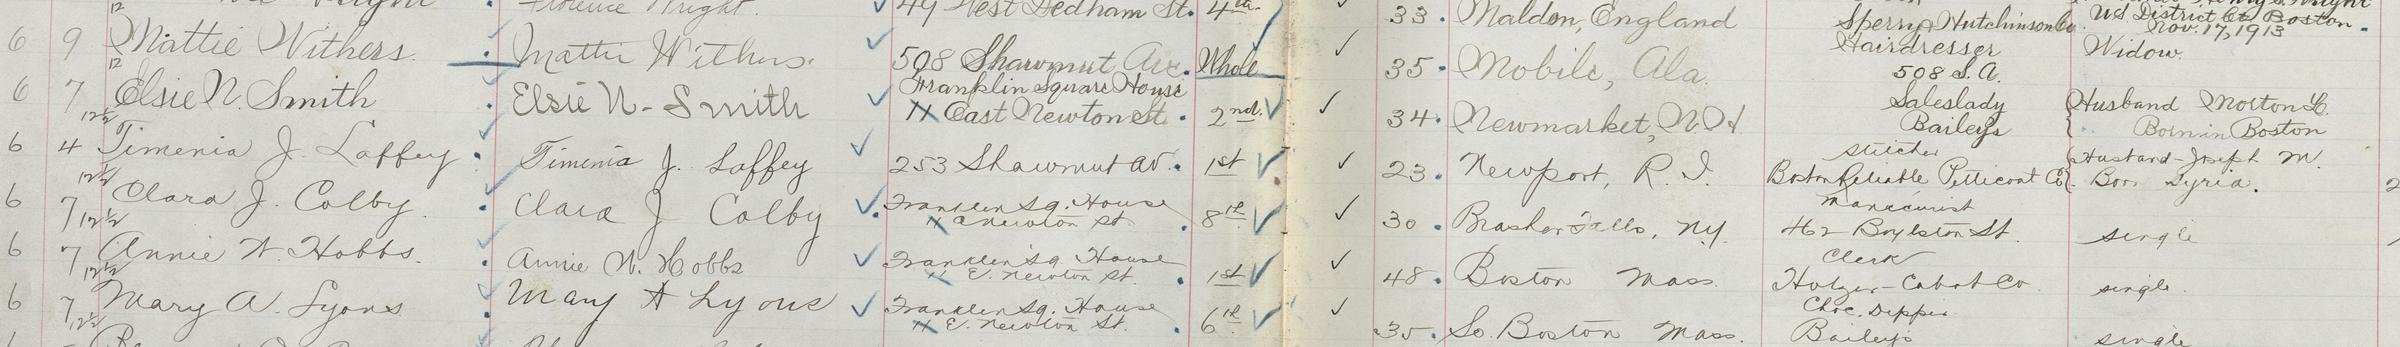 49 West Dedham St. 4th 33. Maldon, England Sperry & Hutchinson Co. US District Ct. Boston Nov. 17, 1913.
6 9 Mattie Withers. Mattie Withers. 508 Shawmut Ave. Whole 35. Mobile, Ala. Hairdresser 508 S. A. Widow.
12
6 7 Elsie N. Smith Elsie N. Smith Franklin Square House 11 East Newton St. 2nd. 34. Newmarket, N.H. Saleslady Bailey's Husband Morton L. Born in Boston
12 1/2
6 4 Timenia J. Laffey Timenia J. Laffey 253 Shawmut Av. 1st 23. Newport, R. I. Stitcher Boston Reliable Petticoat Co. Husband - Joseph M. Born Syria.
12 1/2
6 7 Clara J. Colby. Clara J Colby Franklin Sq. House 11 E Newton St. 8th 30. Brasher Falls, N.Y. Manicurist 462 Boylston St. single
12 1/2
6 7 Annie W. Hobbs. Annie W. Hobbs Franklin Sq. House 11 E. Newton St. 1st 48. Boston Mass. Clerk Holtzer-Cabot Co. single.
12 1/2
6 7 Mary A. Lyons Mary A Lyons Franklin Sq. House 11 E. Newton St. 6th 35. So. Boston Mass. Choc. Dipper Bailey's single
12 1/2